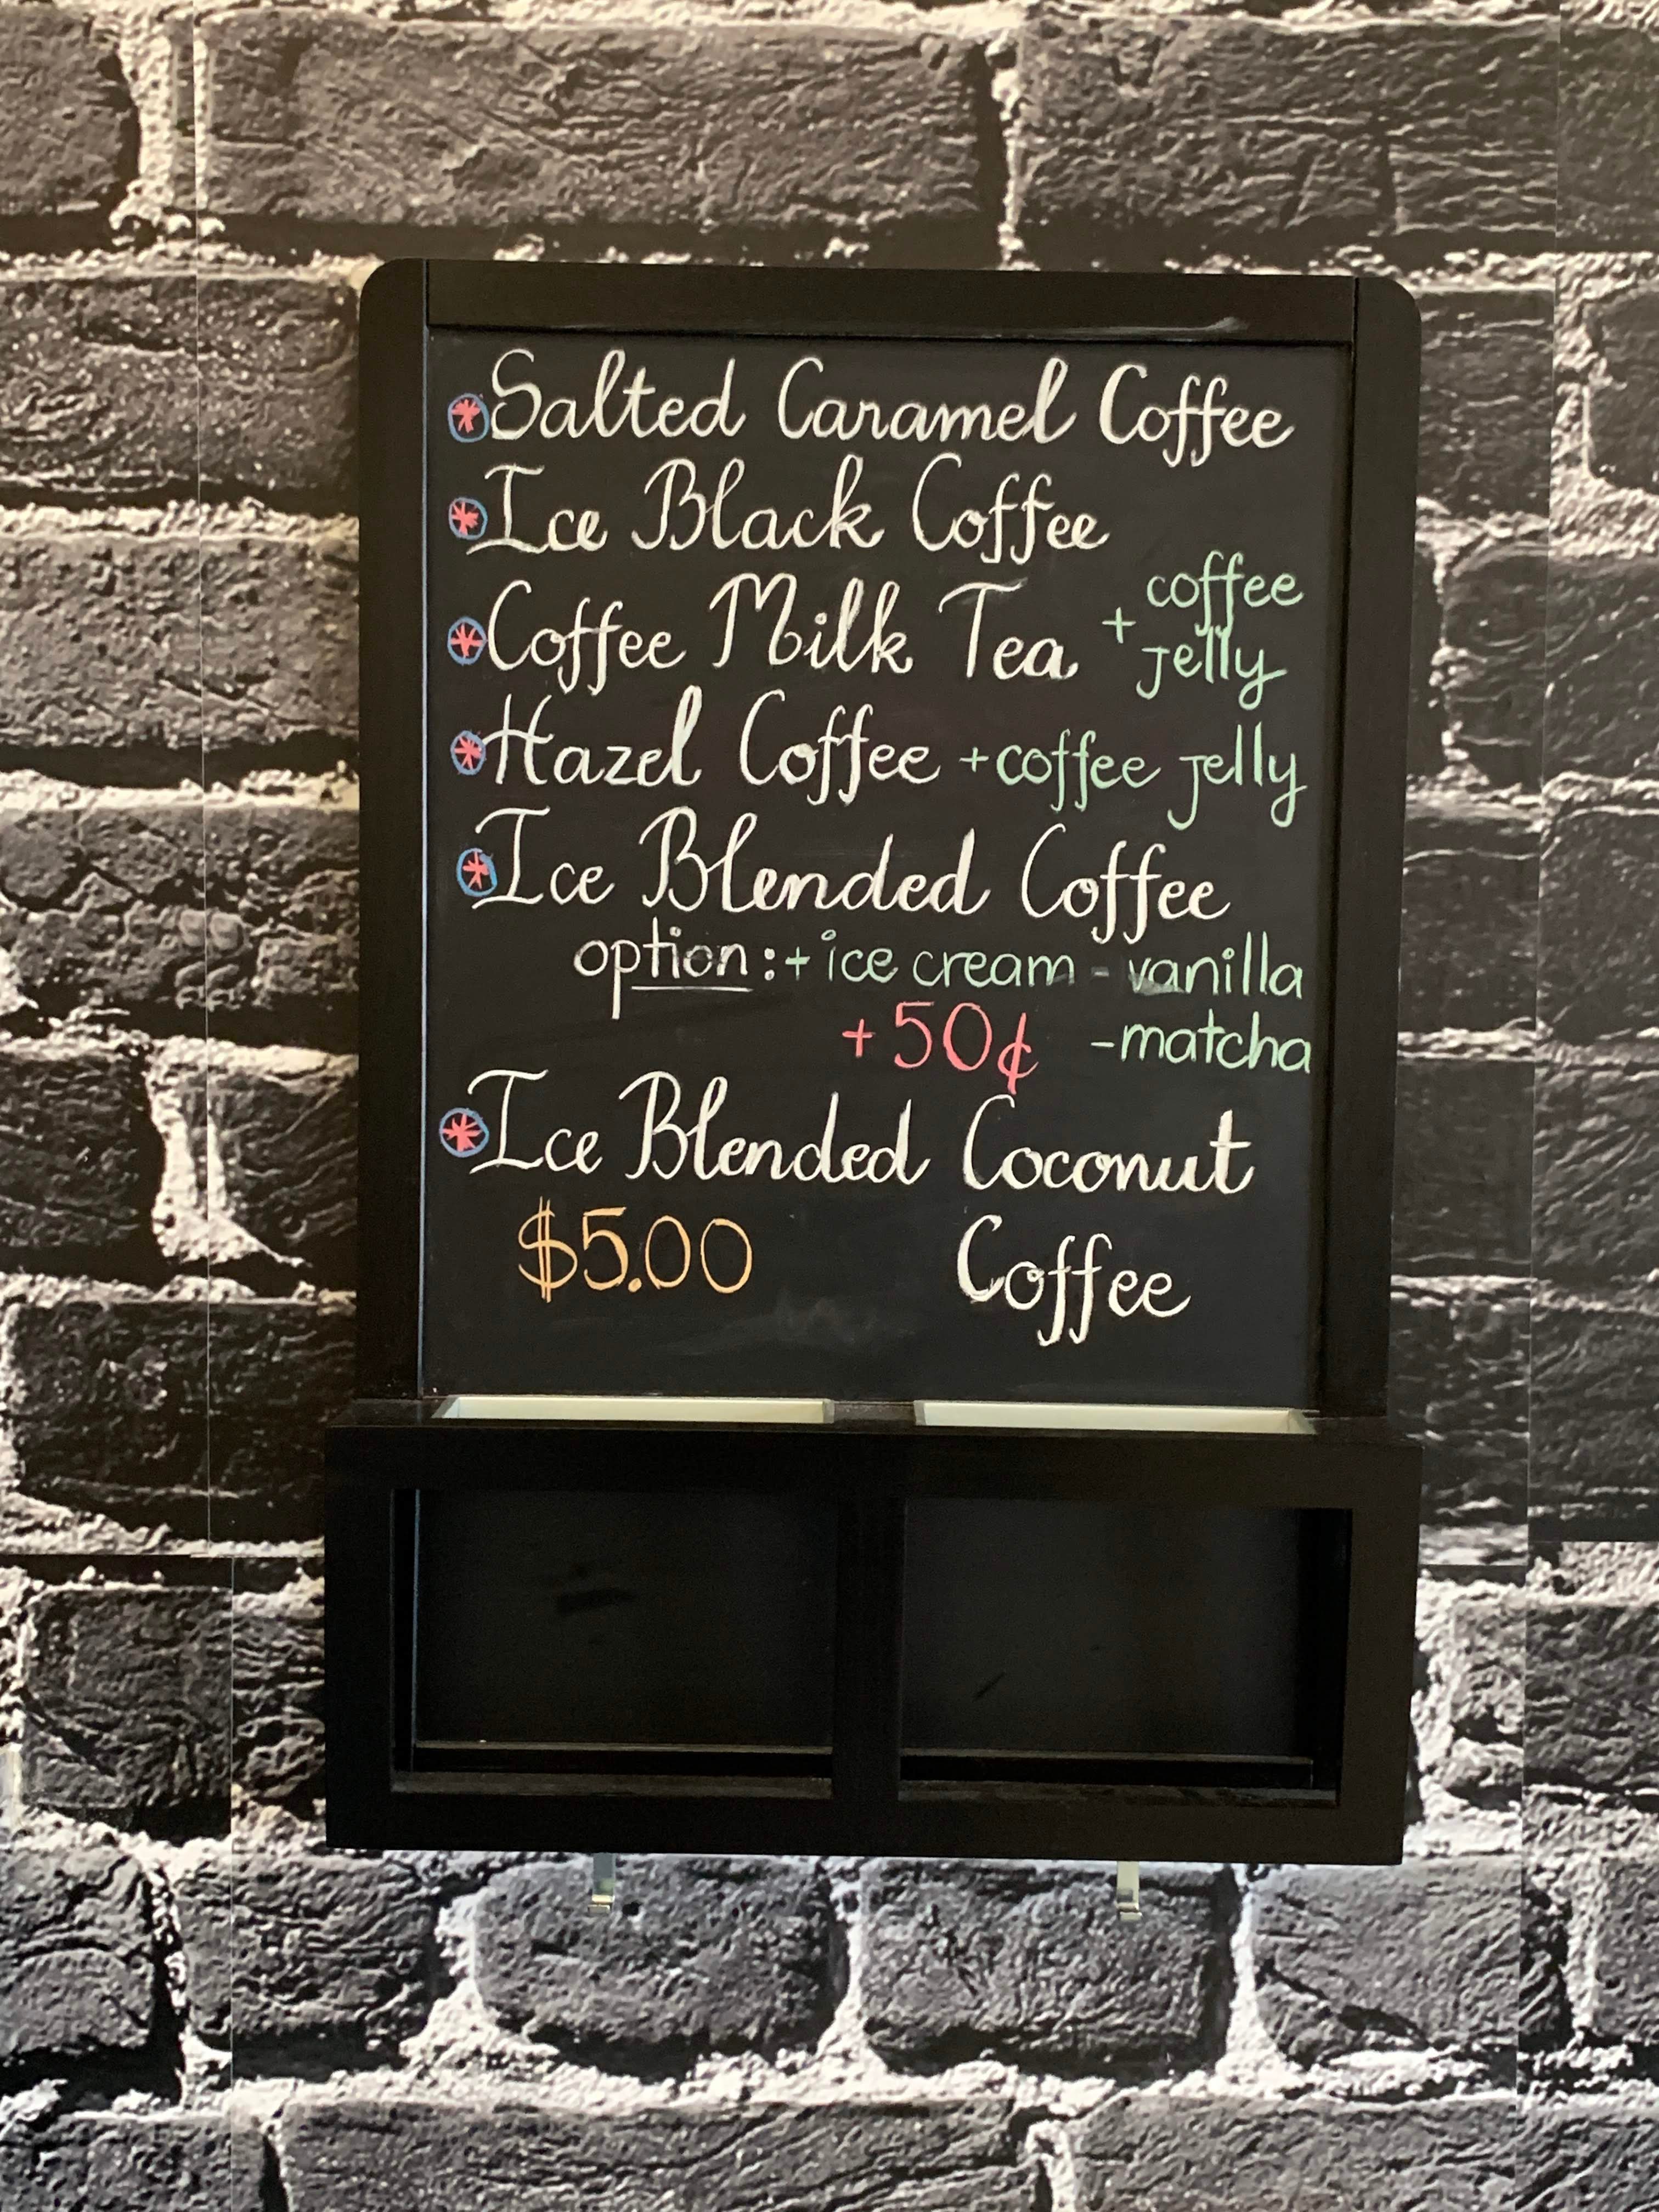 Salted Caramel Coffee
Ice Black Coffee
Coffee Milk Tea + coffee
jelly
Hazel Coffee + coffee jelly
Ice Blended Coffee
option : + ice cream - vanilla
+ 50¢ - matcha
Ice Blended Coconut
$5.00 Coffee